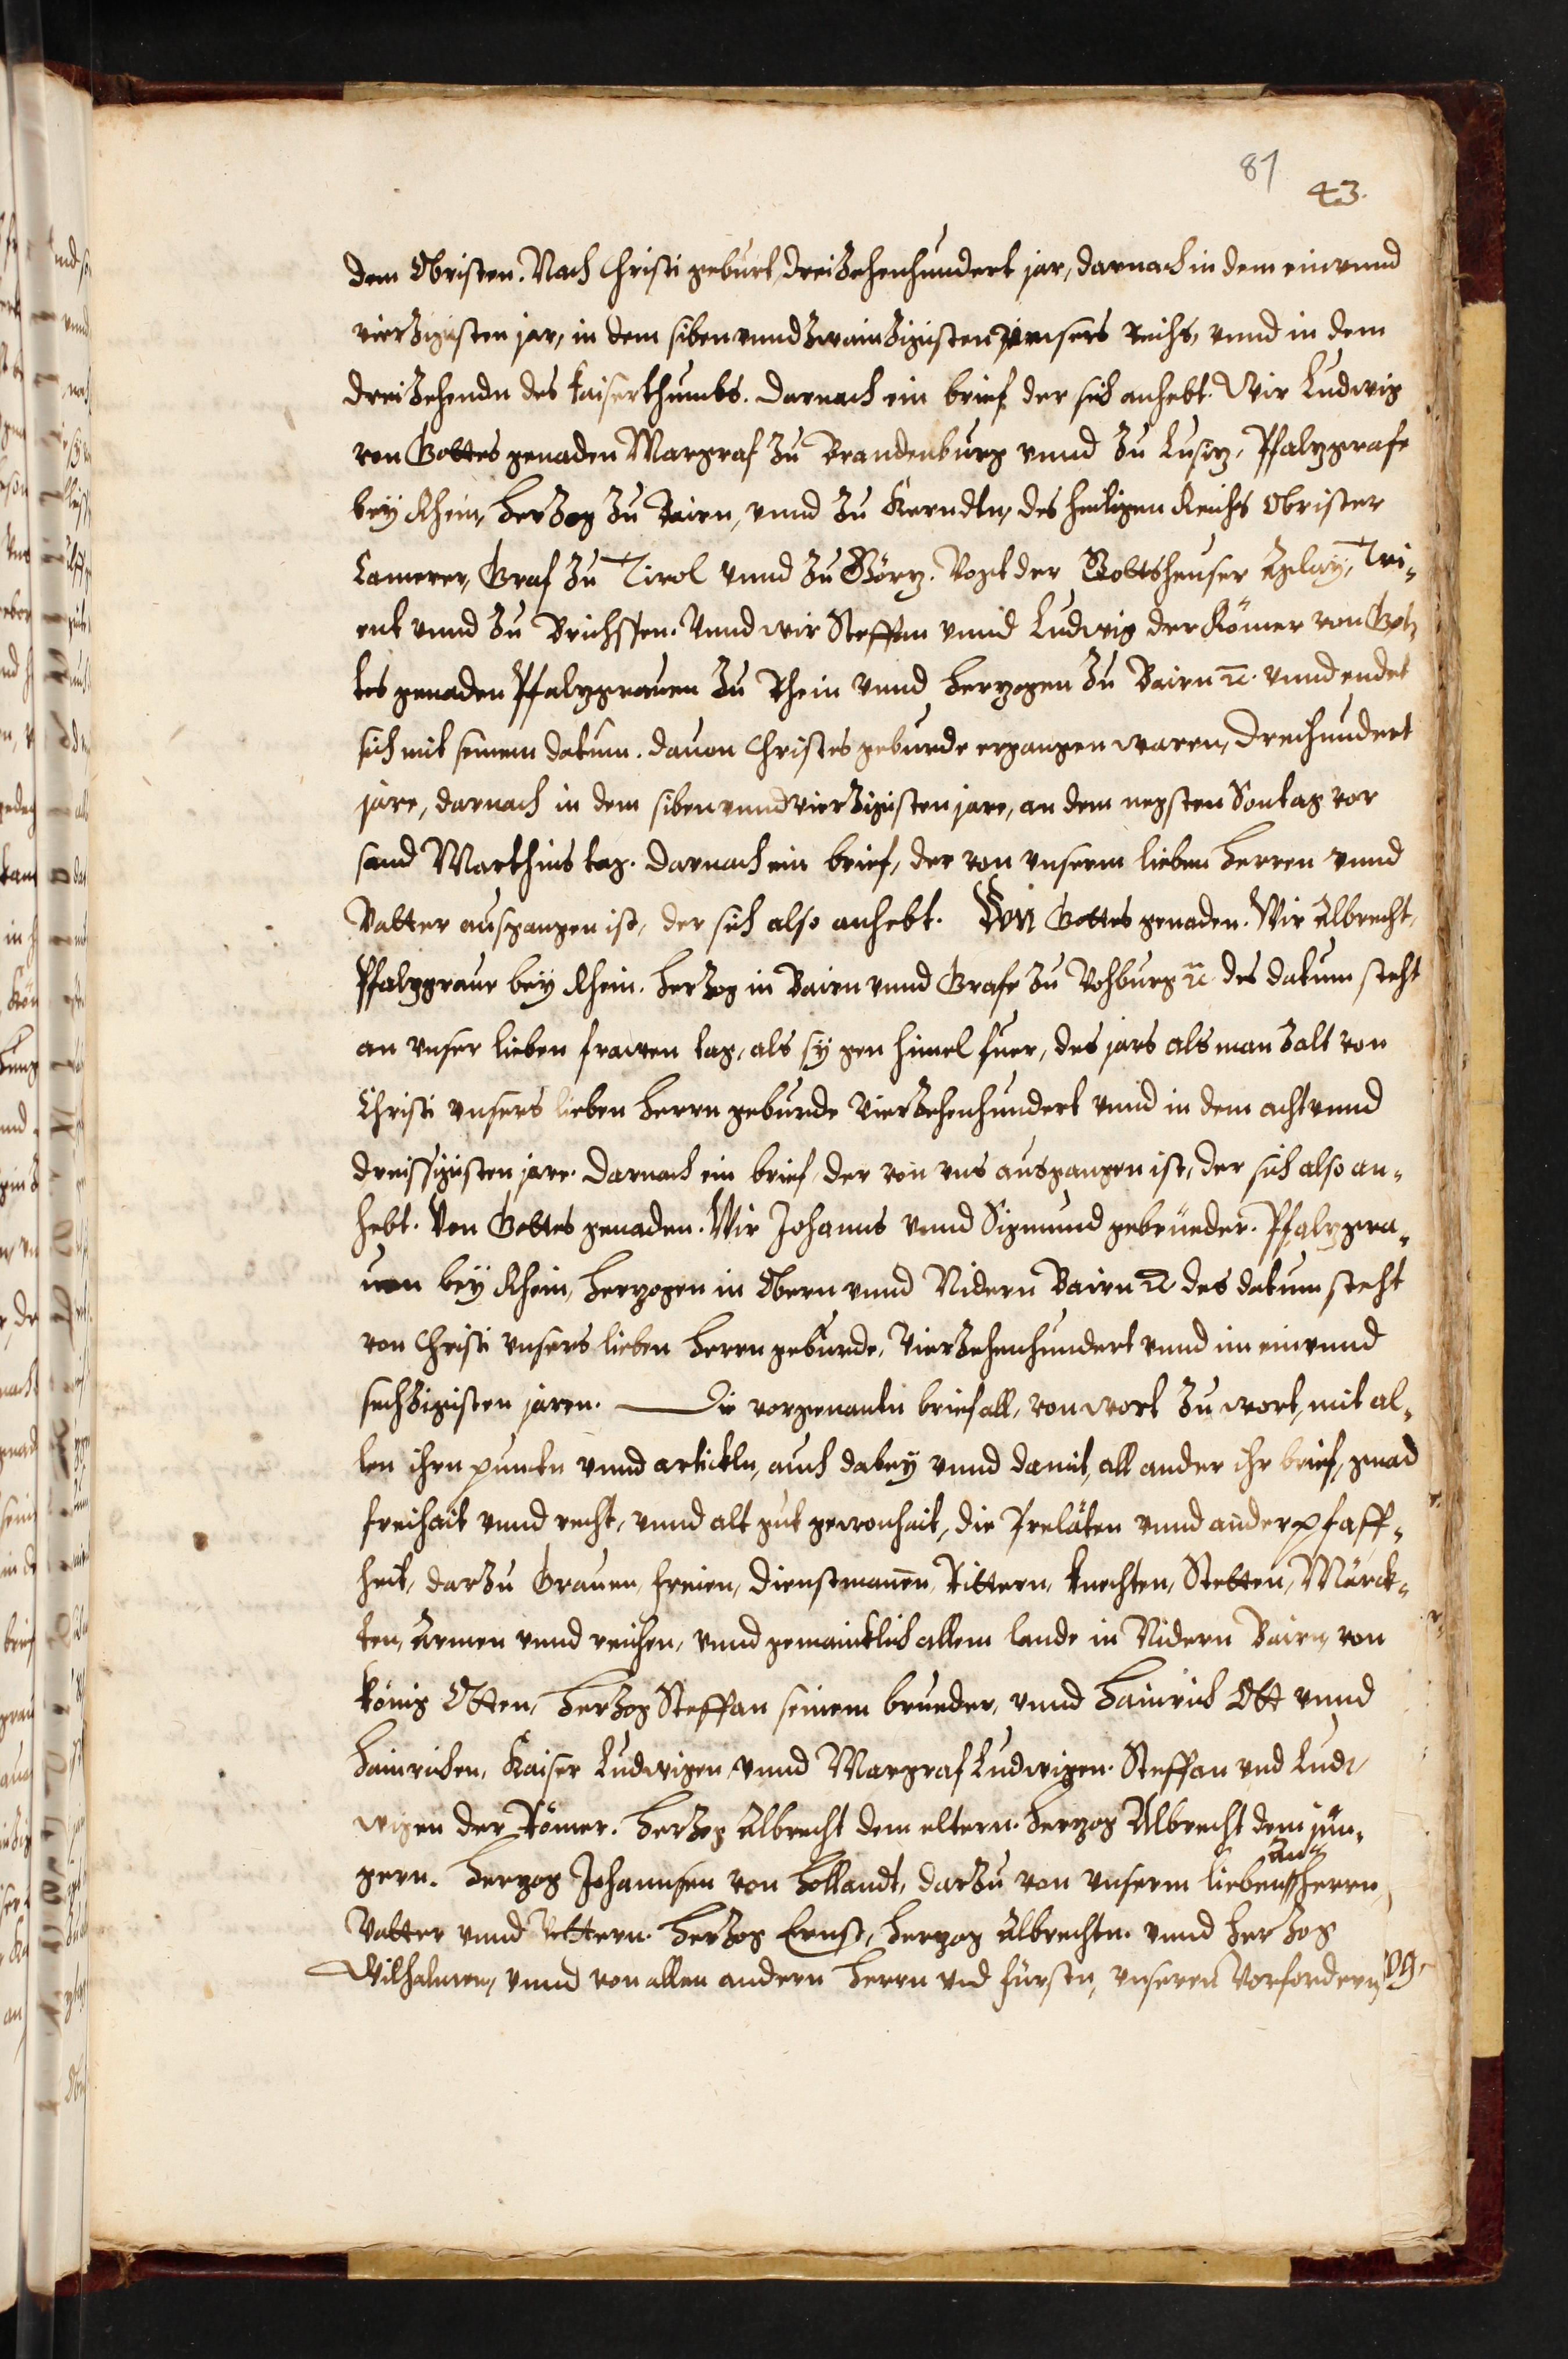 81
43.
dem Obristen. Nach Christi geburt, dreizehenhundert jar, darnach in dem einvnnd
vierzigisten jar, in dem siben vnnd zwainzigisten vnsers reichs, vnnd in dem
dreizehendn des kaiserthumbs. darnach ein brief der sich anhebt. Wir Ludwig
von Gottes genaden Margraf zu Brandenburg vnnd zu Lusitz, Pfalzgrafe
beÿ Rhein, Herzog zu Bairn, vnnd zu Kerndtn, des heiligen Reichs Obrister
Camerer, Graf zu Tirol vnnd zu Görtz. Vogt der Gottsheuser Aglaÿ, Tri„
ent vnnd zu Brichssen. Vnnd wir Steffan vnnd Ludwig der Römer von Got„
tes genaden Pfalzgrauen zu Rhein vnnd Herzogen zu Bairn ꝛc. vnnd endet
sich mit seinem datum. dauon Christes geburde ergangen waren, dreihundert
jare, darnach in dem siben vnnd vierzigisten jare, an dem negsten Sontag vor
sand Marthins tag. Darnach ein brief, der von vnserm lieben Herren vnnd
Vatter ausgangen ist, der sich also anhebt. Von Gottes genaden. Wir Albrecht,
Pfalzgraue beÿ Rhein. Herzog in Bairn vnnd Grafe zu Vohburg ꝛc des datum steht
an vnser lieben frawen tag, als sÿ gen himel fuer, des jars als man zalt von
Christi vnsers lieben Herrn geburde Vierzehenhundert vnnd in dem acht vnnd
dreissigisten jare. Darnach ein brief, der von vns ausgangen ist, der sich also an„
hebt. Von Gottes genaden. Wir Johanns vnnd Sigmund gebrüeder. Pfalzgra„
uen beÿ Rhein, Herzogen in Obern vnnd Nidern Bairn ꝛc des datum steht
von Christi vnsers lieben Herrn geburde, Vierzehenhundert vnnd im einvnnd
sechzigisten jaren. Die vorgenantn brief all, von wort zu wort, mit al„
len ihrn punctn vnnd artickln, auch dabeÿ vnnd damit, all ander ihr brief, gnad
freihait vnnd recht, vnnd alt gut gewonhait, die Prelaten vnnd ander pfaff„
heit, darzu Grauen, freien, dienstmanen, Rittern, knechten, Stetten, Märck„
ten, Armen vnnd reichen, vnnd gemaincklich allem lande in Nidern Bairn, von
könig Otten, Herzog Steffan seinem brueder, vnnd Hainrich Ott vnnd
Hainrichen, Kaiser Ludwigen, vnnd Margraf Ludwigen. Steffan vnd Lud„
wigen der Römer. Herzog Albrecht dem eltern. Herzog Albrecht dem jün„
gern. Herzog Johannsen von Hollandt, darzu von vnserm lieben Anherrn
Vatter vnnd Vettern. Herzog Ernst, Herzog Albrechtn. vnnd Herzog
Wilhalmen, vnnd von allen andern Herrn vnd fürstn, vnseren Vorfordern